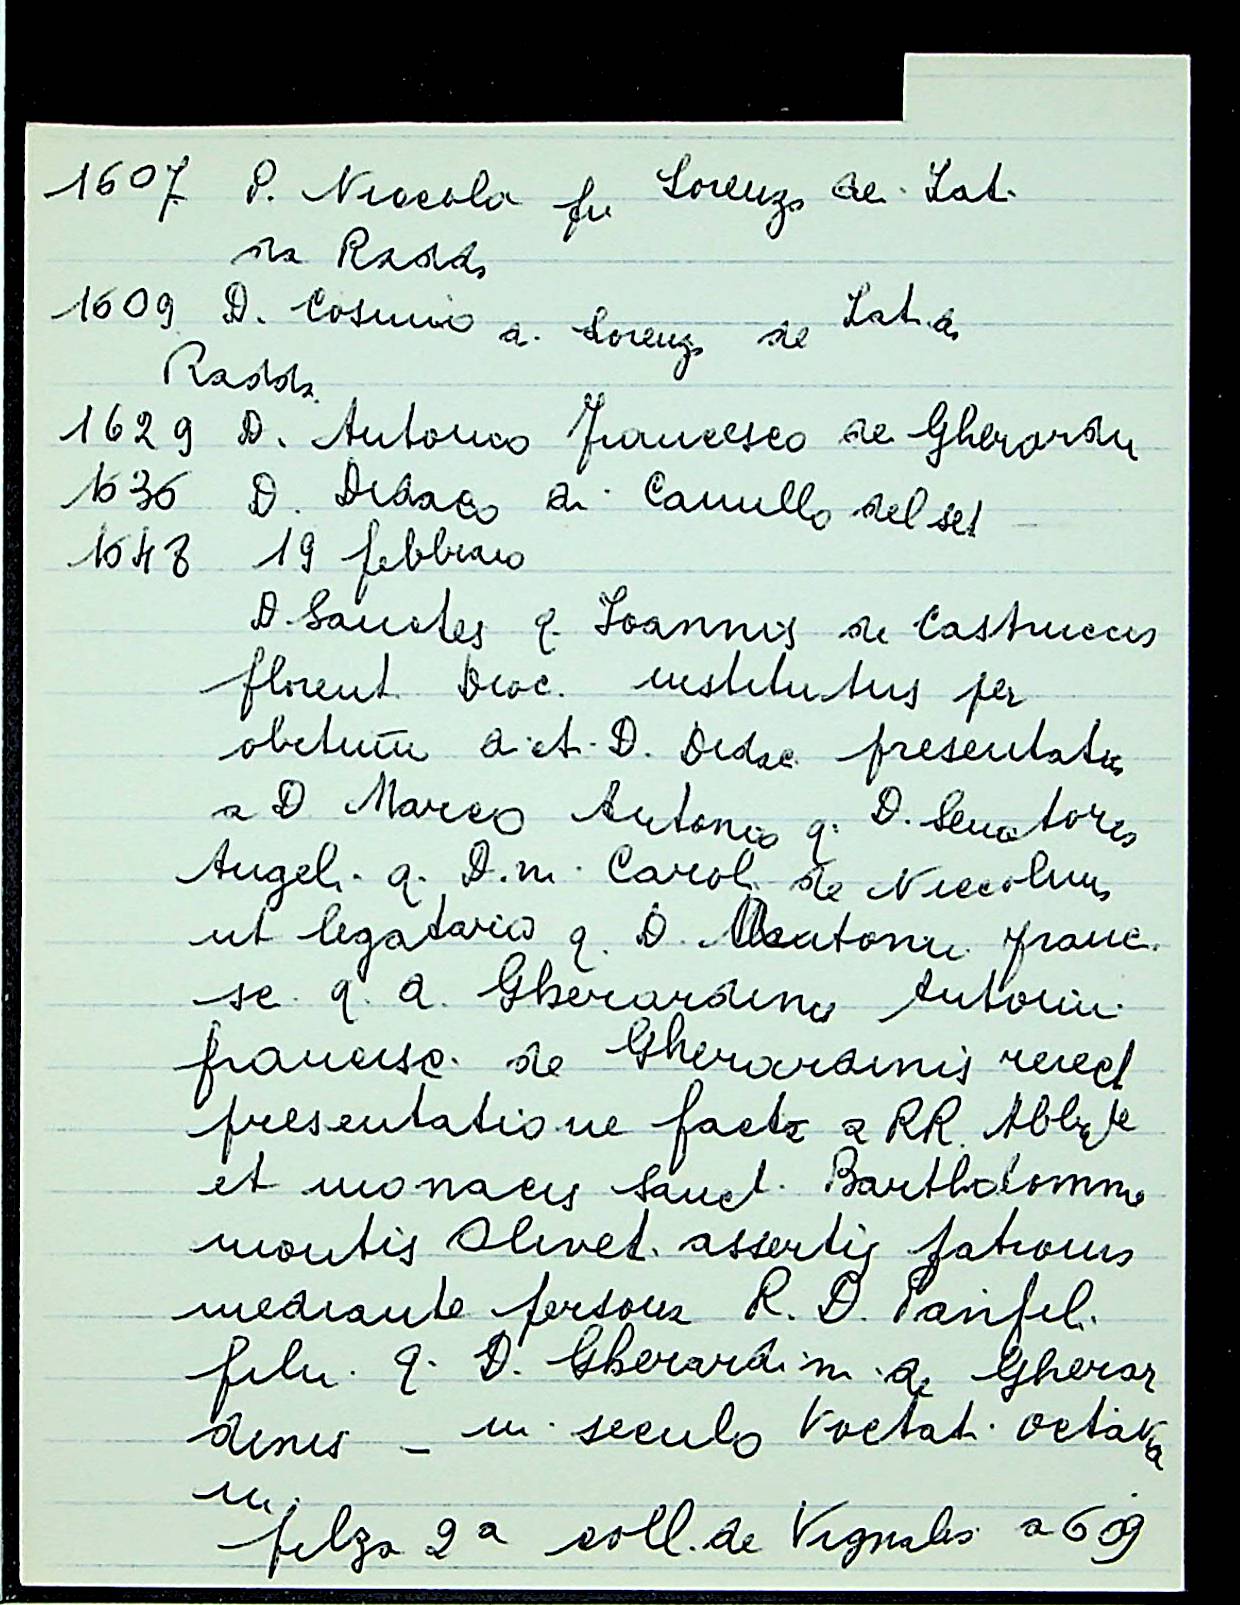 1607 P. Niccola fu Lorenzo de Lat.
da Radda
1609 D. Cosimo d. Lorenzo de Lat. da
Radda
1629 D. Antonio Francesco de Gherardin
1636 D. Didaco di Camillo del set
1648 19 febbraio
D. Sanctes q. Ioannis de Castruccis
florent. Dioc. institutus per
obitum dict. D. Didac. presentatus
a D Marco Antonio q. D. Senatores
Angeli. q. D.ni. Caroli de Niccolinis
ut legatario q. D. Antonii franc.
sc. q. d. Gherardino Antonii.
francisc. de Gherardinis reiect
presentatione facta a RR. Abbate
et monacis Sanct. Bartholomme
montis Olivet. assertis patronis
mediante persona R. D. Panfili.
filii. q. D. Gherardini de Gherar
dinis _ in seculo Voctat. octava
ni.
filza 2a coll. de Vignalis a 609